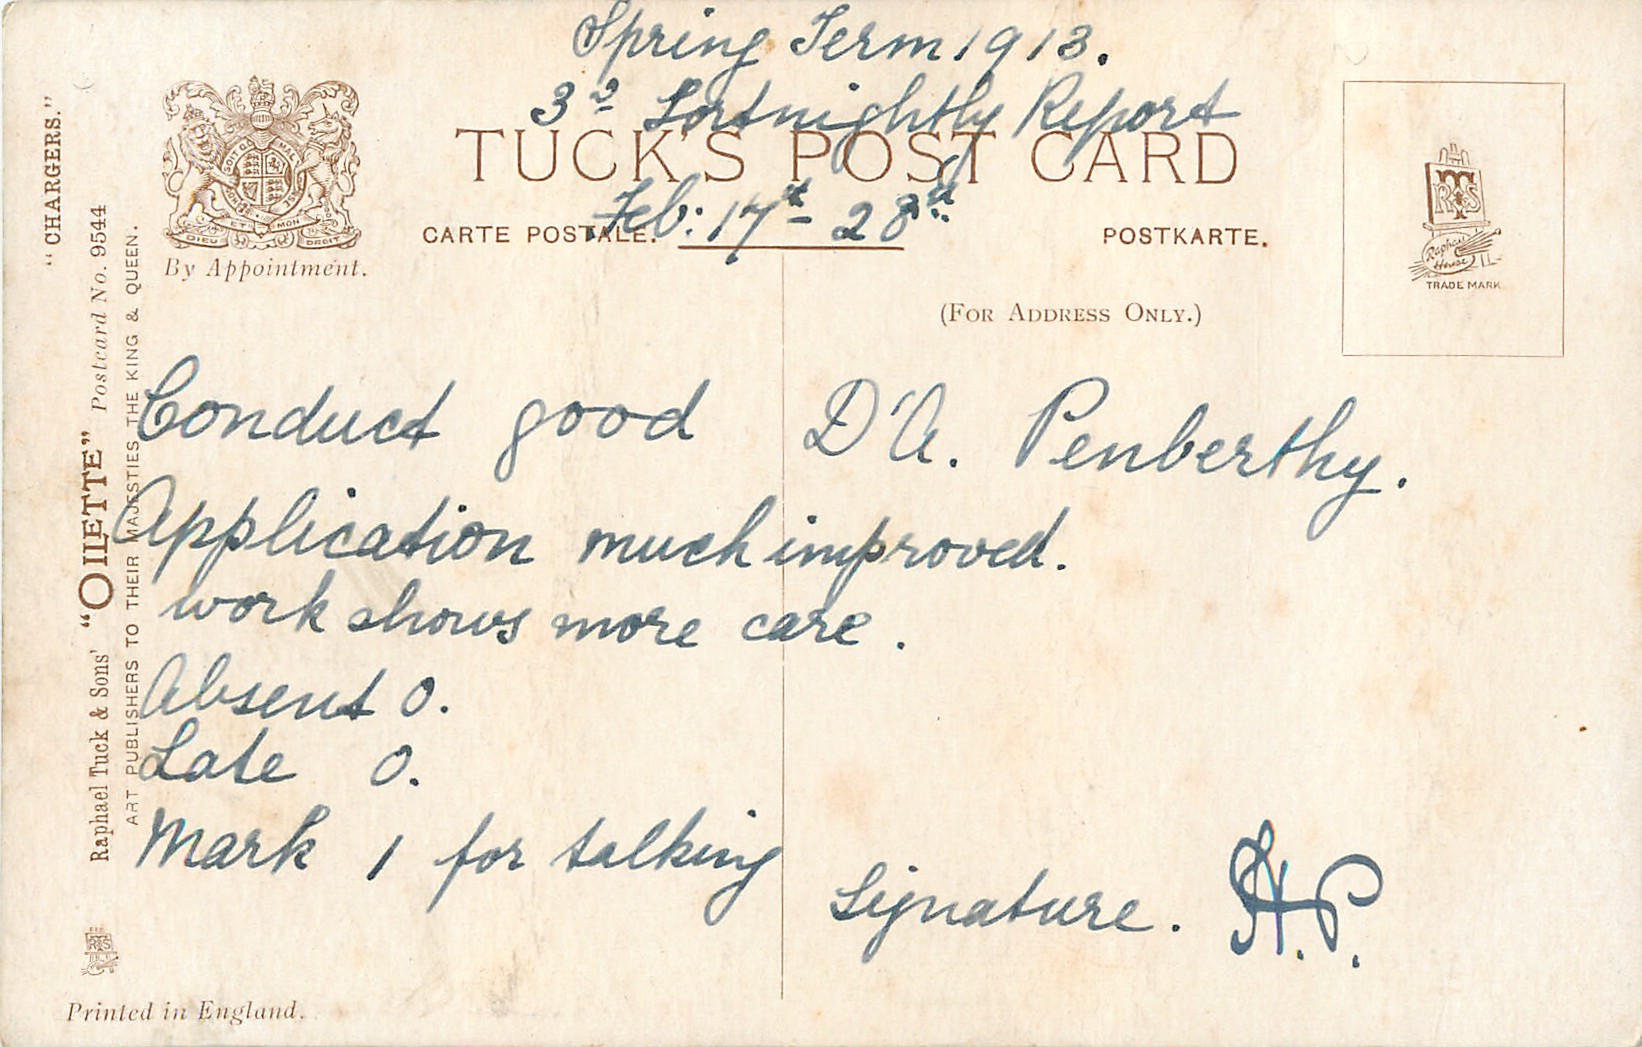 Spring Term 1913.
3rd Fortnightly Report
TUCK'S POST CARD
Feb: 17th - 28th
CARTE POSTALE.
POSTKARTE.
(FOR ADDRESS ONLY.)
By Appointment.
DIEU ET MON DROIT
TRADE MARK
Conduct good
D'A. Penberthy.
Application much improved.
work shows more care.
Absent 0.
Late 0.
Mark 1 for talking
Signature. H.P.
"CHARGERS."
Raphael Tuck & Sons' "OILETTE" Postcard No. 9544
ART PUBLISHERS TO THEIR MAJESTIES THE KING & QUEEN.
Printed in England.